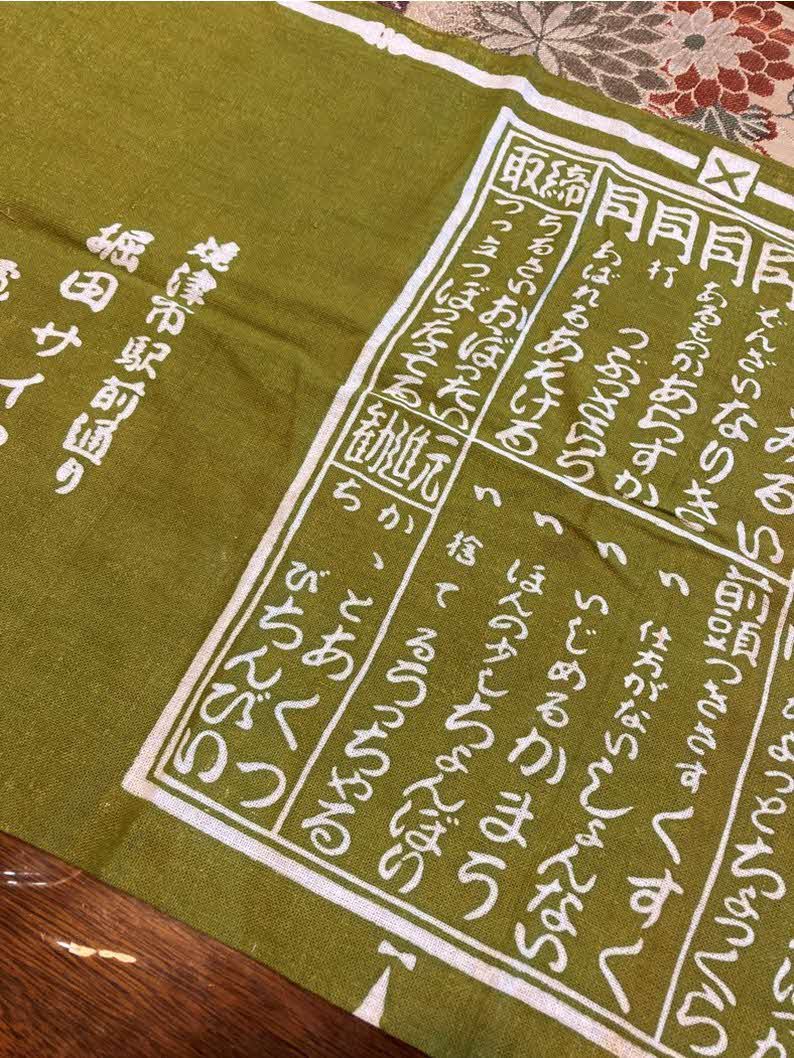 みるい
同 ぜんざい なりき
同 あるものか あらすか
同 打つ
同 あばれる あたける
取締
うるさい おぼったい
つっ立つ ぼったてる
ちょっと ちょっくら
前頭 つきさす くすぐ
〃 仕方がない しょんない
〃 いじめる かまう
〃 ほんの少し ちょんぼり
〃 捨てる うっちゃる
勧進元
かゝと あくつ
ちび ちんびい
焼津市駅前通り
堀田サイ